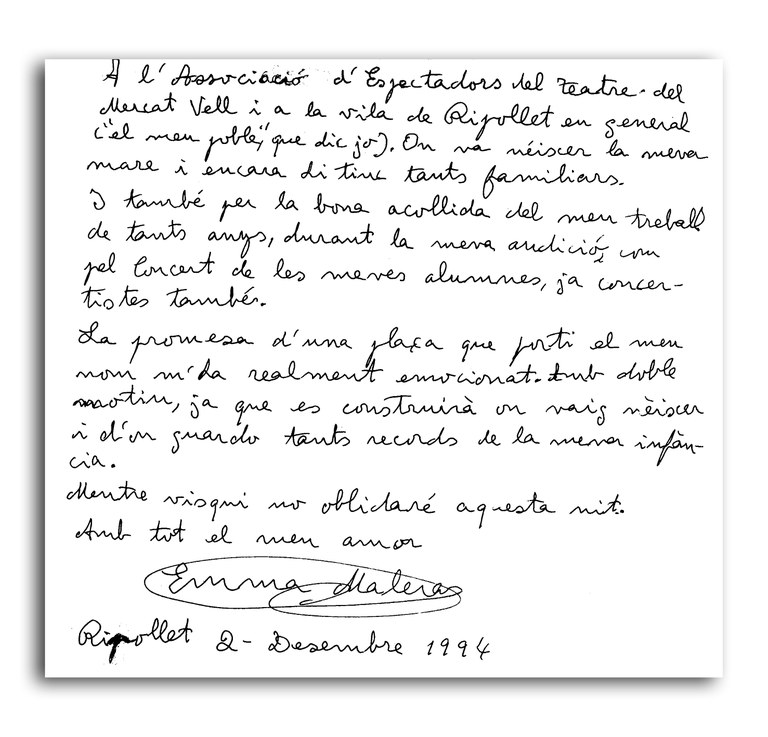 A l'Associació d'Espectadors del Teatre del
Mercat Vell i a la vila de Ripollet en general
("el meu poble", que dic jo). On va néixer la meva
mare i encara di tinc tants familiars.
I també per la bona acollida del meu treball
de tants anys, durant la meva audició, com
pel Concert de les meves alumnes, ja concer-
tistes també.
La promesa d'una plaça que porti el meu
nom m'ha realment emocionat. Amb doble
motiu, ja que es construirà on vaig nèixer
i d'on guardo tants records de la meva infàn-
cia.
Mentre visqui no oblidaré aquesta nit.
Amb tot el meu amor
Emma Maleras
Ripollet 2 - Desembre 1994